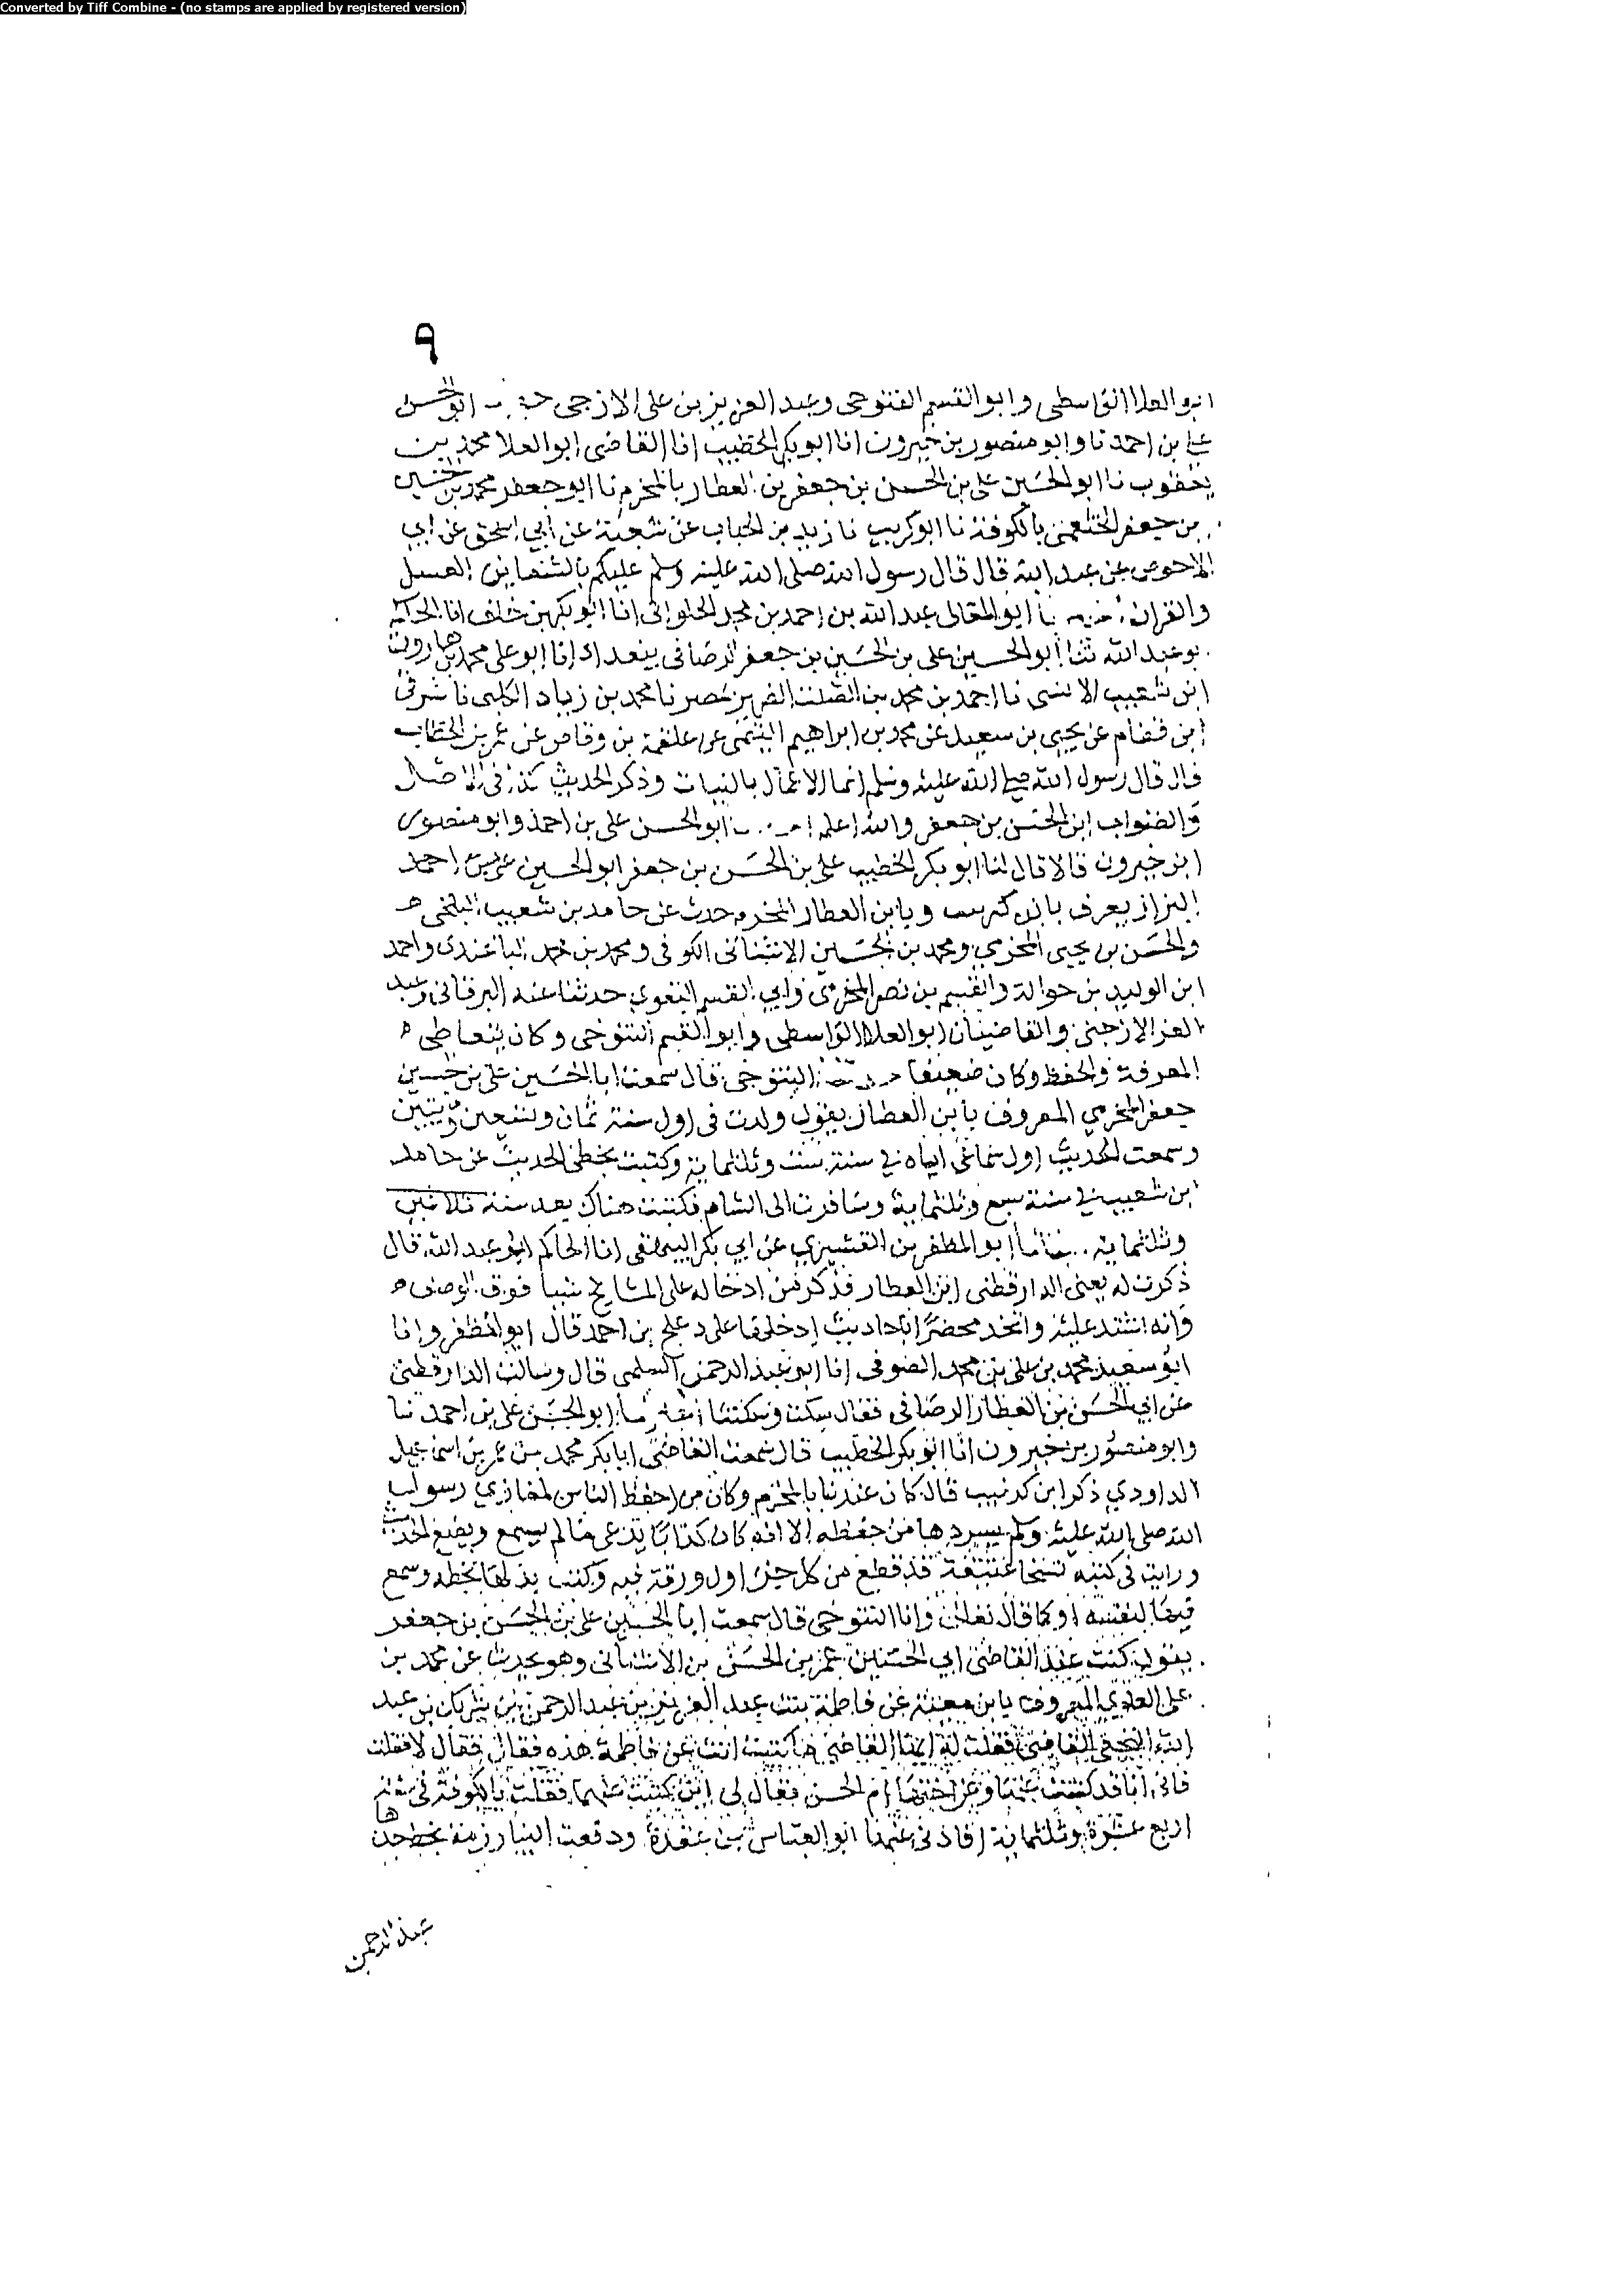 Converted by Tiff Combine - (no stamps are applied by registered version)
٩
ابو العلا الواسطى وابو القسم التنوخى وعبد العزيز بن على الازجى ابو الحسن
على بن احمد نا وابو منصور بن خيرون انا ابو بكر الخطيب انا القاضى ابو العلا محمد بن
يعقوب نا ابو الحسين على بن الحسن بن جعفر بن العطار بالمخرم نا ابو جعفر محمد بن حسين
بن جعفر الخثعمى بالكوفة نا ابو كريب نا زيد بن الحباب عن شعبة عن ابي اسحق عن ابي
الاحوص عن عبد الله قال قال رسول الله صلى الله عليه وسلم عليكم بالشفاين العسل
والقران نا ابو المعالى عبد الله بن احمد بن محمد الحلوانى انا ابو بكر بن خلف انا الحاكم
بو عبد الله ثنا ابو الحسين على بن الحسين بن جعفر الرصافى ببغداد انا ابو على محمد بن هارون
ابن شعيب الا نا احمد بن محمد بن الصلت نا محمد بن زياد الكلبى نا شرقى
ابن قطام عن يحيى بن سعيد عن محمد بن ابراهيم التيمى عن علقمة بن وقاص عن عمر بن الخطاب
قال قال رسول الله صلى الله عليه وسلم انما الاعمال بالنيات وذكر الحديث كذا فى الاصل
والصواب ابن الحسن بن جعفر والله اعلم ابو الحسن على بن احمد وابو منصور
ابن خيرون قالا قال لنا ابو بكر الخطيب على بن الحسن بن جعفر ابو الحسين احمد
البزاز يعرف بابن كرنيب وبابن العطار المخرمى حدث عن حامد بن شعيب البلخى
والحسن بن يحيى المخرمي ومحمد بن الحسين الاشنانى الكوفى ومحمد بن محمد الباغندى واحمد
ابن الوليد بن حوالة والقسم بن نصر المخرمى وابي القسم البغوي حدثنا عنه البرقانى وعبد
العز الازجى والقاضيان ابو العلا الواسطى وابو القسم التنوخى وكان يتعاطى
المعرفة والحفظ وكان ضعيفا التنوخى قال سمعت ابا الحسين على بن حسين
جعفر المخرمي المعروف بابن العطار يقول ولدت فى اول سنة ثمان وتسعين ومئتين
وسمعت الحديث اول سماعى اياه في سنة ست وثلثماية وكتبت بخطى الحديث عن حامد
ابن شعيب في سنة سبع وثلثماية وسافرت الى الشام فكتبت هناك بعد سنة ثلاثين
وثلثماية ابو المظفر بن القشيري عن ابي بكر البيهقى انا الحاكم ابو عبد الله قال
ذكرت له يعنى الدارقطنى ابن العطار فذكر من ادخاله على المشايخ شيا فوق الوصف
وانه اشهد عليه واتخذ محضرا باحاديث ادخلها على دعلج بن احمد قال ابو المظفر وانا
ابو سعيد محمد بن على بن محمد الصوفى انا ابو عبد الرحمن السلمى قال وسالت الدارقطنى
عن ابي الحسن بن العطار الرصافى فقال ابو الحسن على بن احمد نا
وابو منصور بن خيرون انا ابو بكر الخطيب قال سمعت القاضى ابا بكر محمد بن عمر بن اسماعيل
الداودي ذكر ابن كرنيب قال كان عندنا بالمخرم وكان من احفظ الناس لمغازي رسول
الله صلى الله عليه وسلم يسردها من حفظه الا انه كان كذابا يدعى ما لم يسمع ويضع الحديث
ورايت فى كتبه نسخا عتيقة قد قطع من كل جزء اول ورقة فيه وكتب بدلها بخطه وسمع
فيها لنفسه او كما قال وانا التنوخى قال سمعت ابا الحسين على بن الحسن بن جعفر
يقول كنت عند القاضى ابي الحسين عمر بن الحسن بن الاشنانى وهو يحدث عن محمد بن
على العلوي المعروف بابن معية عن فاطمة بنت عبد العزيز بن عبد الرحمن بن شريك بن عبد
الله النخعى القاضى فقلت له ايها القاضى كتبت انت عن فاطمة هذه فقال فقال لا فقلت
فانى انا قد كتبت عنها وعن اختها ام الحسن فقال لى اين كتبت عنهما فقلت بالكوفة فى سنة
اربع عشرة وثلثماية افادنى عنهما ابو العباس بن عقدة ودفعت الينا رزمة بخط جدها
عبد الرحمن